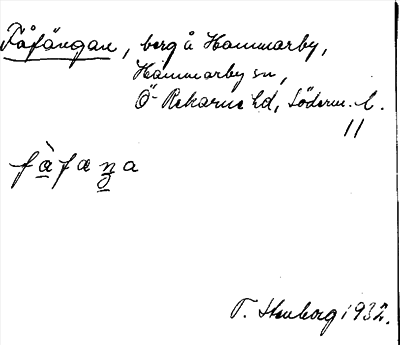 Fåfängan, berg å Hammarby,
Hammarby sn,
Ö-Rekarne hd, Söderm. l.
11
fàfaŋa
T. Stenborg 1932.